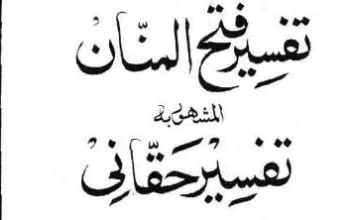 تفسیر فتح المنّان
المشهور به
تفسیر حقّانی